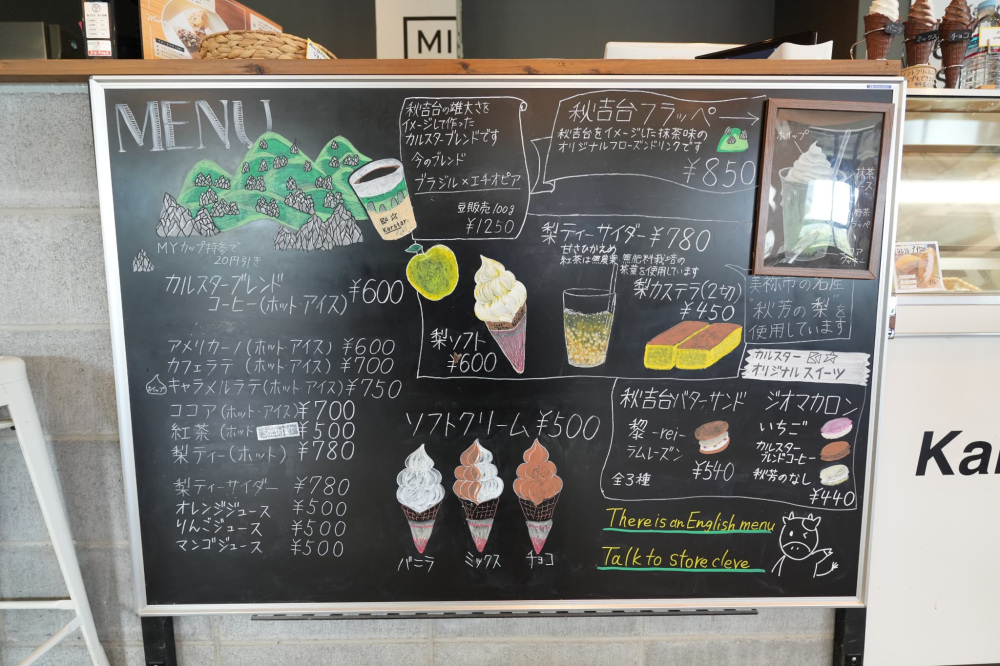 MI
MENU
秋吉台の雄大さを
イメージして作った
カルスターブレンドです
今のブレンド
ブラジル×エチオピア
豆販売100g
¥1250
秋吉台フラッペ
秋吉台をイメージした抹茶味の
オリジナルフローズンドリンクです
¥850
Karstar
MYカップ持参で
20円引き
カルスターブレンド
コーヒー(ホット・アイス) ¥600
アメリカーノ(ホット・アイス) ¥600
カフェラテ(ホット・アイス) ¥700
キャラメルラテ(ホット・アイス) ¥750
ココア(ホット・アイス) ¥700
紅茶(ホット ¥500
梨ティー(ホット) ¥780
梨ティーサイダー ¥780
オレンジジュース ¥500
りんごジュース ¥500
マンゴジュース ¥500
梨ティーサイダー ¥780
甘さひかえめ
紅茶は無農薬 無肥料栽培の
茶葉を使用しています
梨ソフト
¥600
梨カステラ(2切)
¥450
美祢市の名産
秋芳の"梨"を
使用しています
カルスター
オリジナルスイーツ
ソフトクリーム ¥500
バニラ
ミックス
チョコ
秋吉台バターサンド
黎-rei-
ラムレーズン
¥540
全3種
ジオマカロン
いちご
カルスター
ブレンドコーヒー
秋芳のなし
¥440
There is an English menu
Talk to store cleve
Ka